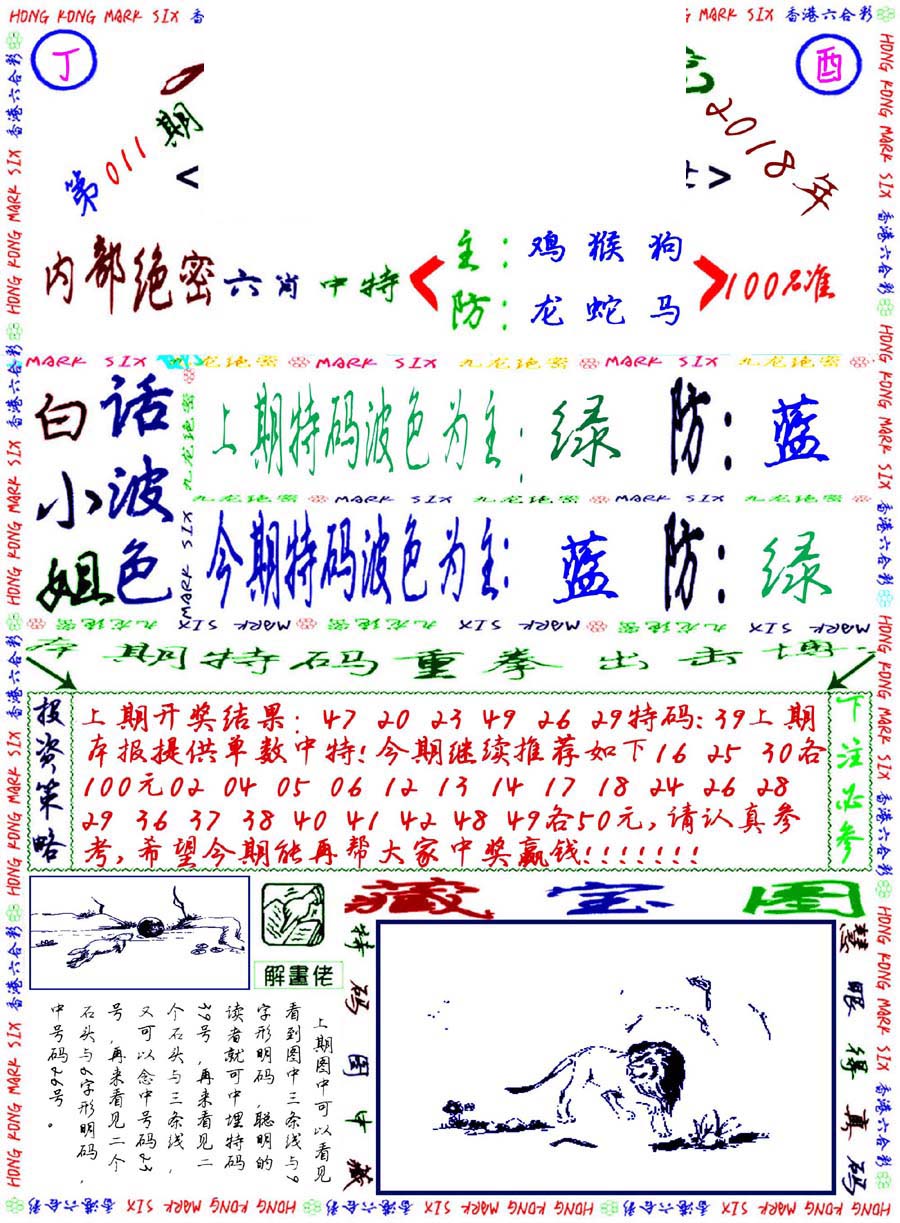 HONG KONG MARK SIX 香
MARK SIX 香港六合彩
丁
酉
第011期
2018年
内部绝密六肖中特
主：鸡猴狗
防：龙蛇马
100%准
MARK SIX 九龙绝密 MARK SIX 九龙绝密 MARK SIX 九龙绝密
白话
小波
姐色
上期特码波色为主：绿 防：蓝
九龙绝密 MARK SIX 九龙绝密 MARK SIX 九龙绝密
今期特码波色为主：蓝 防：绿
期特码重拳出击
投资策略
上期开奖结果：47 20 23 49 26 29特码：39上期
本报提供单数中特！今期继续推荐如下16 25 30各
100元02 04 05 06 12 13 14 17 18 24 26 28
29 36 37 38 40 41 42 48 49各50元，请认真参
考，希望今期能再帮大家中奖赢钱！！！！！！！
下注必参
藏宝图
解畫佬
上期图中可以看见
看到图中三条线与9
字形明码，聪明的
读者就可中埋特码
39号，再来看见二
个石头与三条线，
又可以念中号码23
号，再来看见二个
石头与6字形明码，
中号码26号。
特码图中藏
慧眼得真码
HONG KONG MARK SIX 香港六合彩